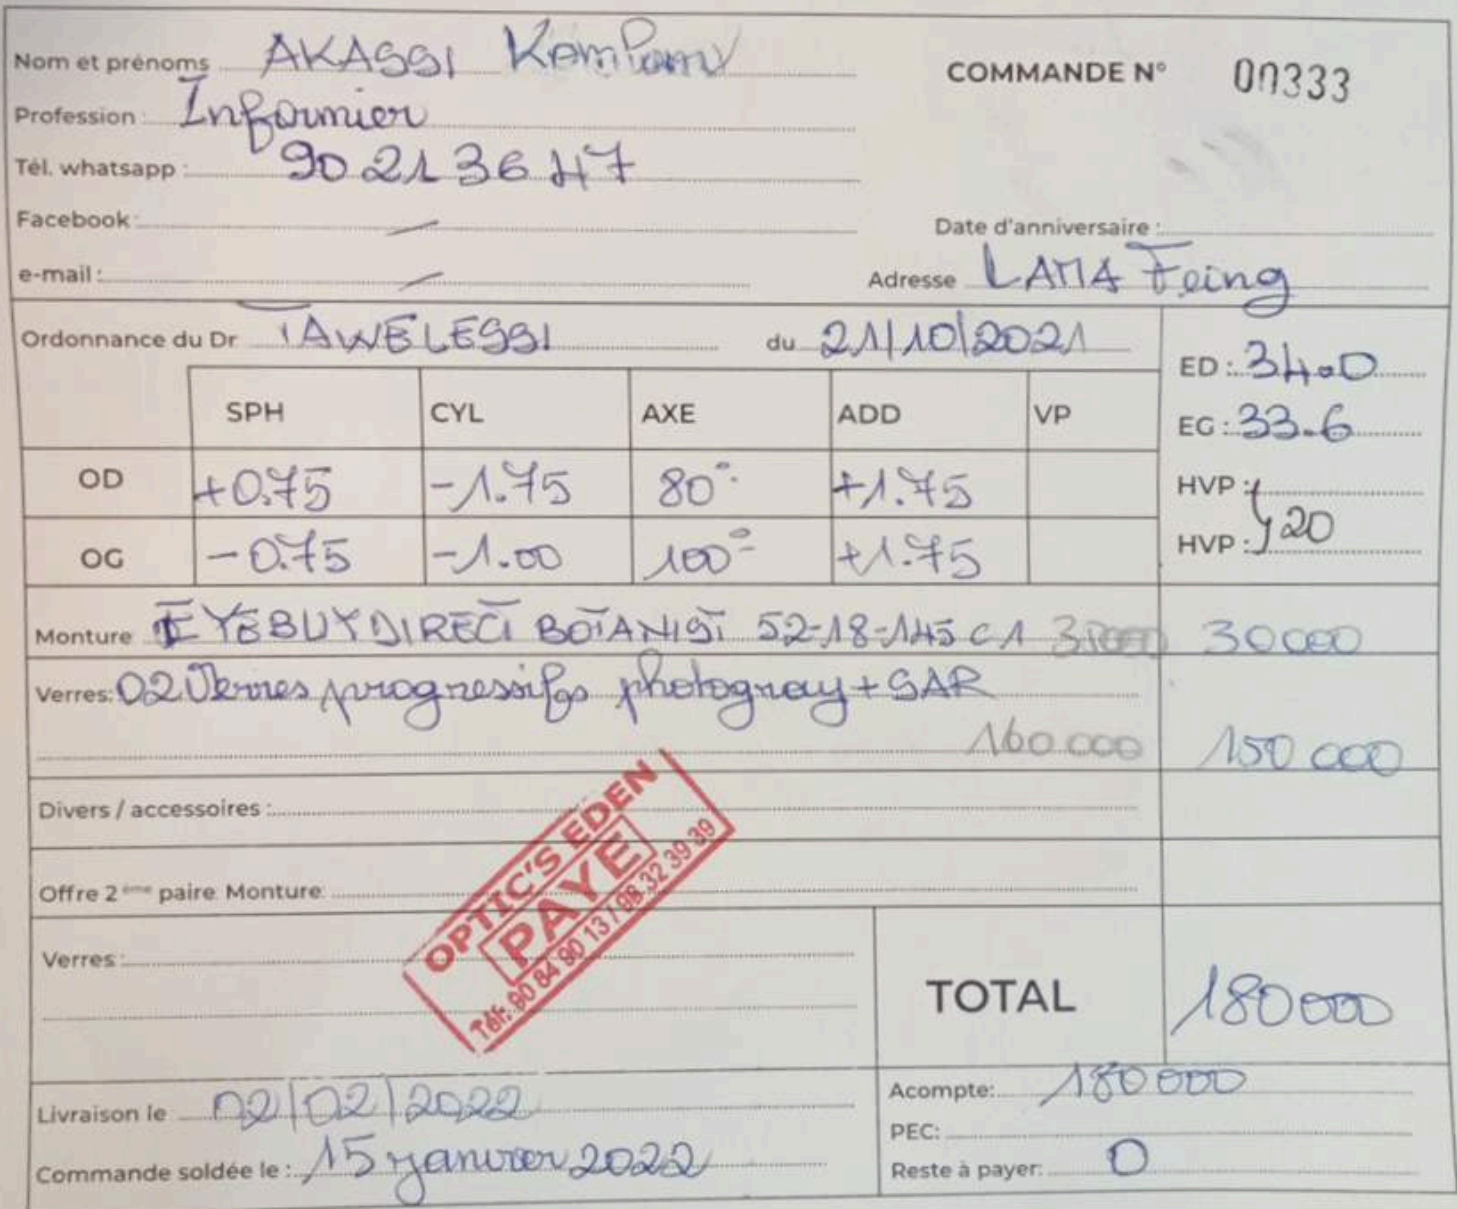 Nom et prénoms AKASSI
COMMANDE N° 00333
Profession : Infirmier
Tél. whatsapp : 90 21 36 47
Facebook : —
Date d'anniversaire :
e-mail : —
Adresse LAMA Feing
Ordonnance du Dr TAWELESSI du 21/10/2021
ED : 34.0
SPH CYL AXE ADD VP
EG : 33.6
OD +0.75 -1.75 80° +1.75
HVP :
OG -0.75 -1.00 100° +1.75
HVP : 20
Monture EYEBUYDIRECT BOTANIST 52-18-145 C1 30000
Verres: 02 Verres progressifs photogray + SAR
160 000 150 000
Divers / accessoires :
Offre 2ème paire Monture:
OPTIC'S EDEN
PAYE
Tél: 90 84 90 13 / 98 32 39 39
Verres :
TOTAL 180000
Livraison le 02/02/2022
Acompte: 180000
PEC:
Commande soldée le : 15 janvier 2022
Reste à payer: 0